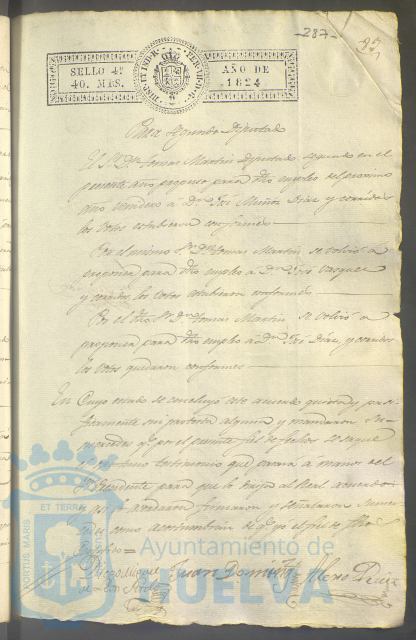 -287-
95
SELLO 4º
40. MRS.
AÑO DE
1824
Para Segundo Diputado
El Sr. Dn. Tomas Martin Diputado segundo en el
presente año propuso para dho empleo del proximo
año venidero á Dn. José Muñoz Diaz y corridos
los votos estubieron conformes
Por el mismo Sr. Dn. Tomas Martin se volvió á
proponer para dho empleo á Dn. José Vazquez
y corridos los votos estubieron conformes
Por el dho Sr. Dn. Tomas Martin se volvió á
proponer para dho empleo á Dn. José Diaz, y corridos
los votos quedaron conformes
En Cuyo estado se concluyó este acuerdo quieta y paci
ficamente sin protesta alguna y mandaron
que por el presente de Cabildo se saque
testimonio que pasará á manos del
Presidente para que lo dirija al Real acuerdo
asi lo acordaron firmaron y señalaron
como acostumbran de que yo el
Juan Domin
PORTUS MARIS
ET TERRAE
Ayuntamiento de
HUELVA